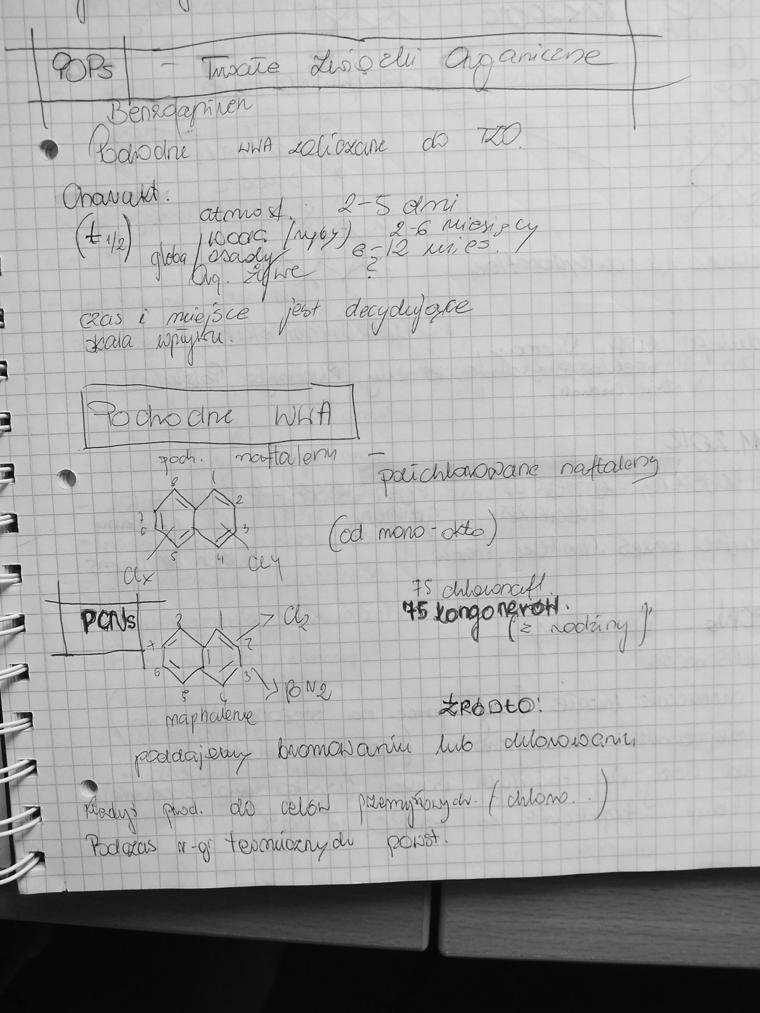 POPs - Trwałe Związki Organiczne
Benzoapiren
Pochodne WWA zaliczane do TZO.
Charakt.
(t 1/2) atmosf. 2-5 dni
woda /rzyby) 2-6 miesięcy
gleba / osady 6-12 mies.
Org. żywe ?
czas i miejsce jest decydujące
skala wpływu.
Pochodne WWA
poch. naftalenu - polichlorowane naftaleny
8 1 2 7 6 3 5 4
(od mono-okto)
Clx Cly
75 chloronaft
PCNs 75 kongenerów.
(z rodziny)
8 1 Cl2
7 2
6 3
5 4 Br2
naphalene
ŹRÓDŁO:
poddajemy bromowaniu lub chlorowaniu
Kiedyś prod. do celów przemysłowych. (chloro..)
Podczas r-gi termicznych powst.